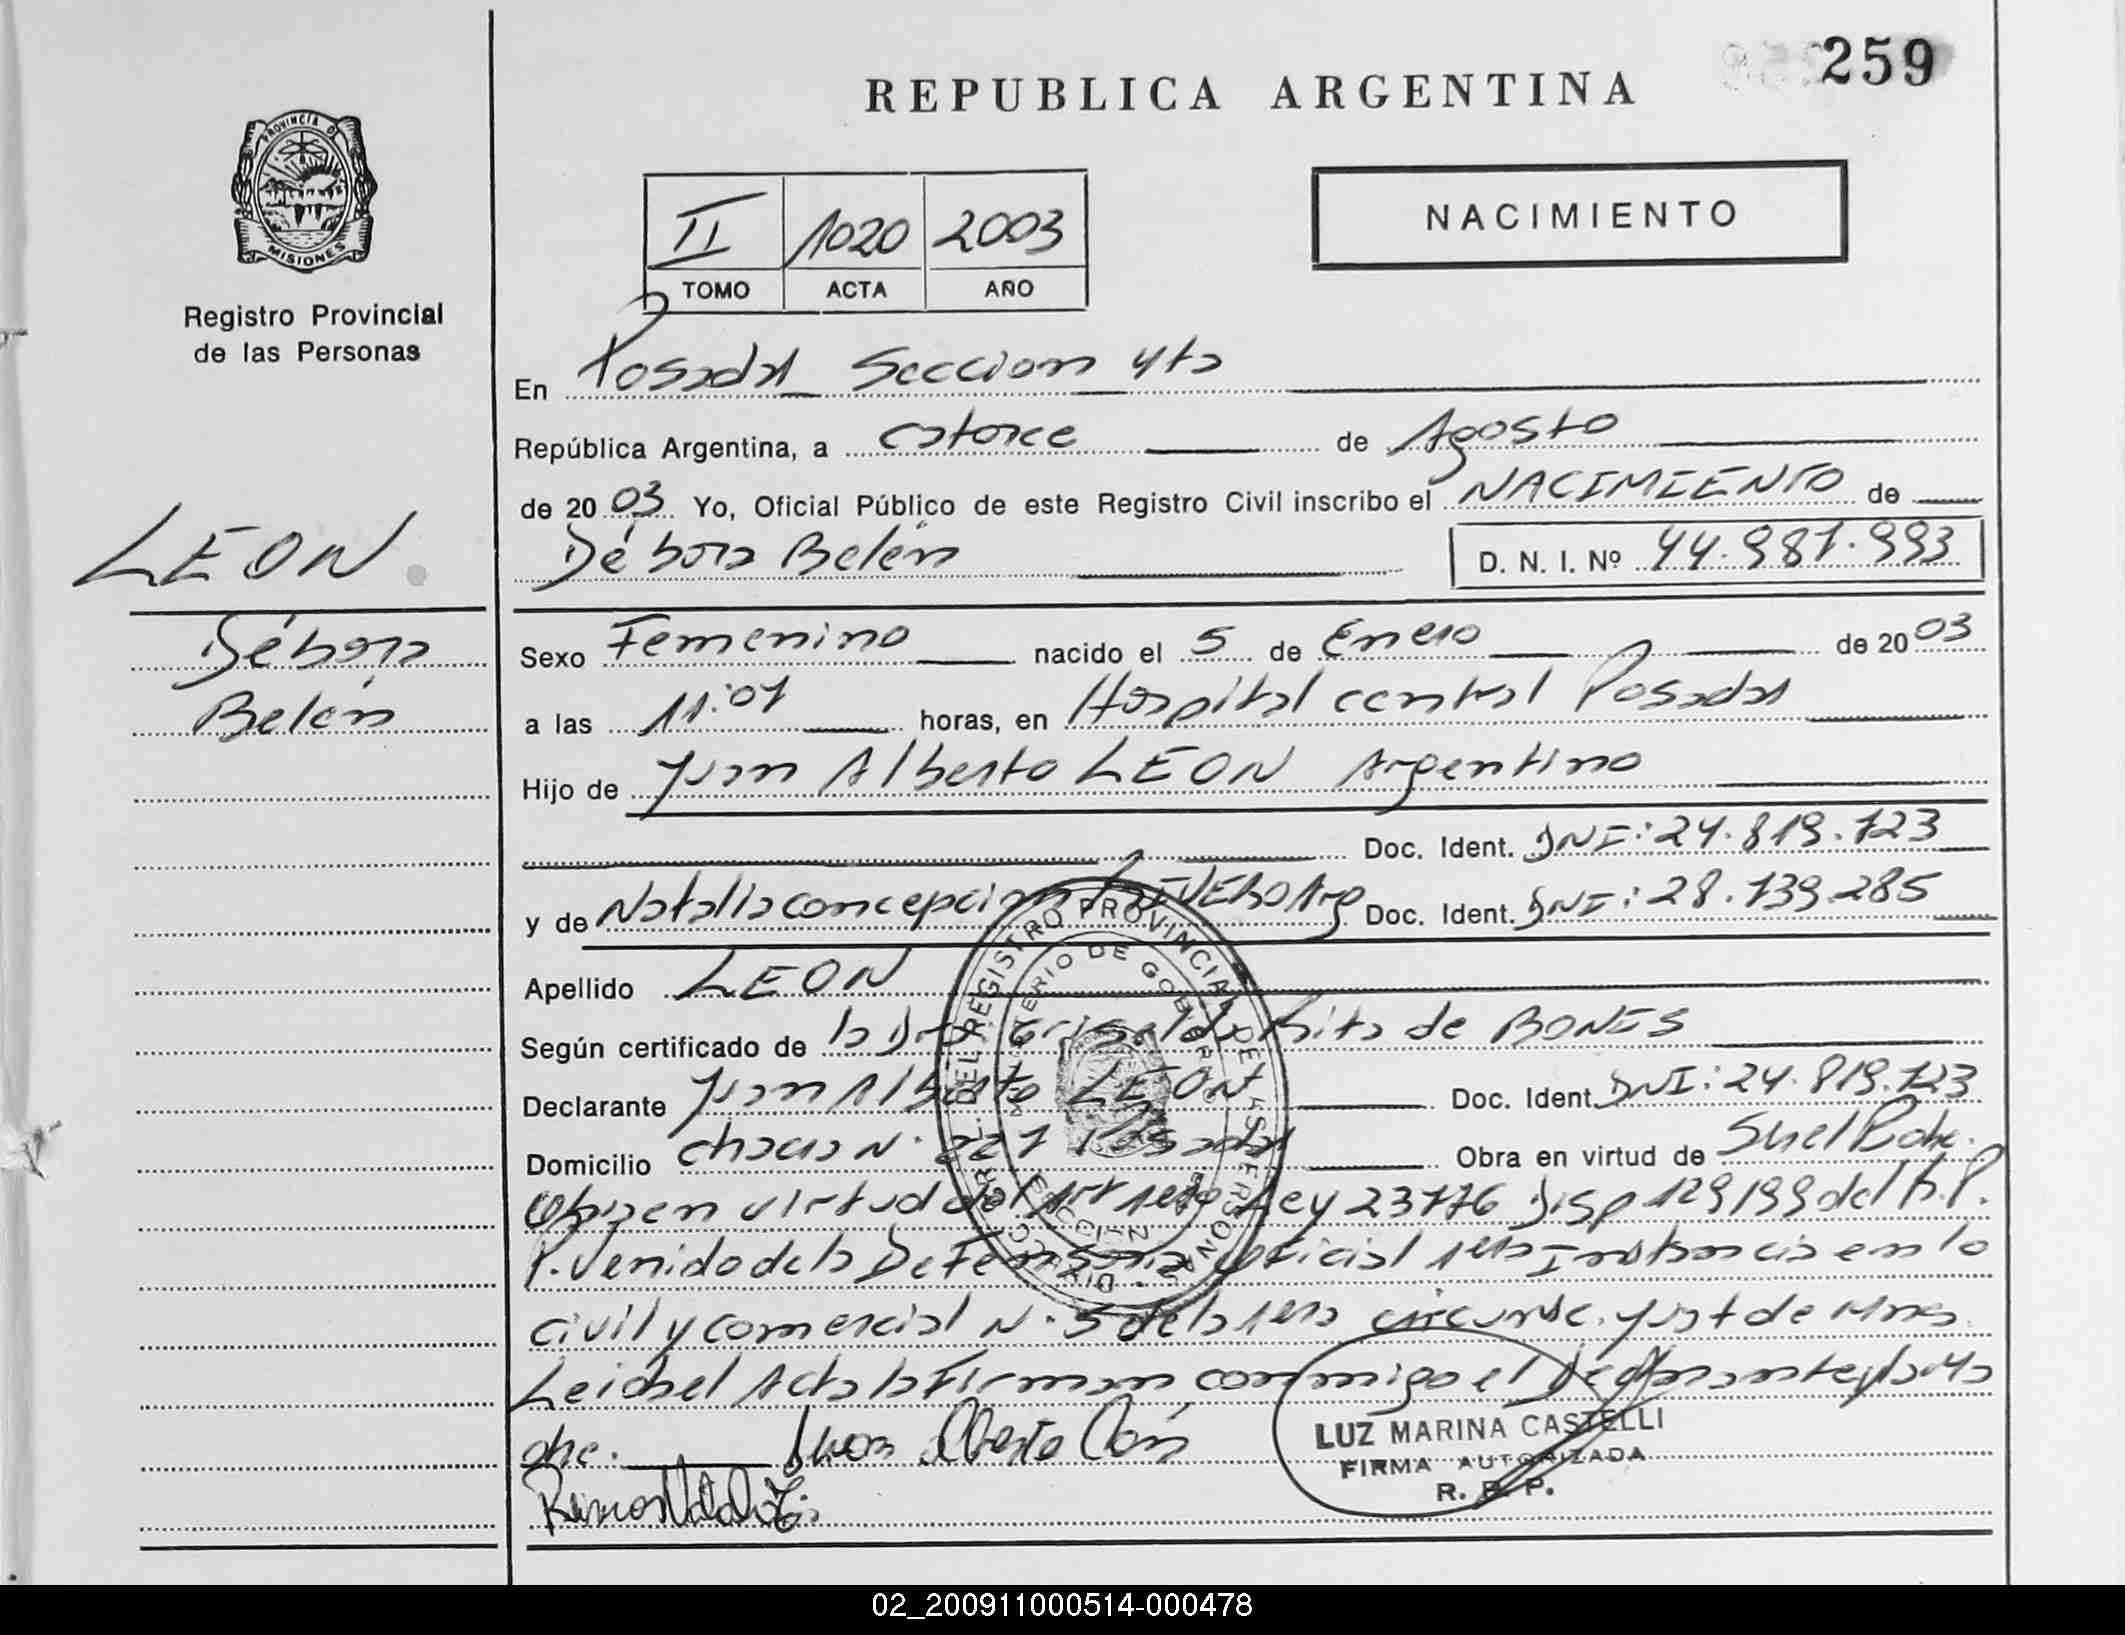 259
REPUBLICA ARGENTINA
PROVINCIA D
MISIONES
Registro Provincial
de las Personas
NACIMIENTO
II 1020 2003
TOMO ACTA AÑO
En Posadas Seccion 4ta
República Argentina, a catorce de Agosto
de 20 03 Yo, Oficial Público de este Registro Civil inscribo el NACIMIENTO de
Débora Belén D. N. I. Nº 44.981.993
LEON.
Débora
Belén
Sexo Femenino nacido el 5 de Enero de 20 03
a las 11:01 horas, en Hospital central Posadas
Hijo de Juan Alberto LEON Argentino
Doc. Ident. DNI: 24.819.123
y de Natalia concepcion Arg Doc. Ident. DNI: 28.139.285
Apellido LEON
Según certificado de la Dra Griselda Rita de BONES
Declarante Juan Alberto LEON Doc. Ident. DNI: 24.819.123
Domicilio chacra N. 221 Posadas Obra en virtud de
en virtud del Art 1ero Ley 23776 Disp 129/99 del R.P.
P. Venido de la Defensoria oficial 1era Instancia en lo
civil y comercial N. 5 de la 1era circunsc. Just de Mnes.
Leida el Acta la Firman conmigo el Declarante y la Ma
dre. Juan Alberto León
LUZ MARINA CASTELLI
FIRMA AUTORIZADA
R. P. P.
02_200911000514-000478